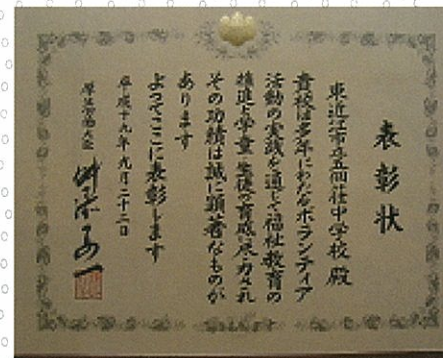 表彰状
東近江市立朝桜中学校殿
貴校は多年にわたるボランティア
活動の実践を通じて福祉教育の
推進と学童・生徒の育成に尽力され
その功績は誠に顕著なものが
あります
よってここに表彰します
平成十九年九月二十二日
厚生労働大臣 舛添要一